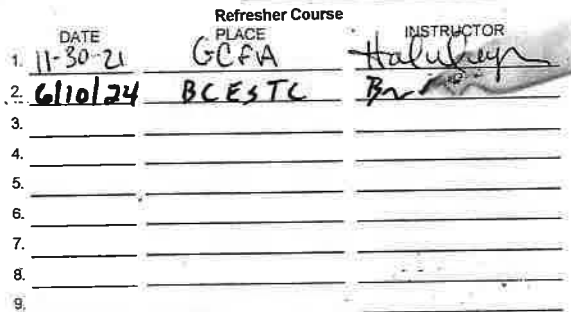 Refresher Course
DATE PLACE INSTRUCTOR
1. 11-30-21 GCFA
2. 6/10/24 BCESTC
3.
4.
5.
6.
7.
8.
9.